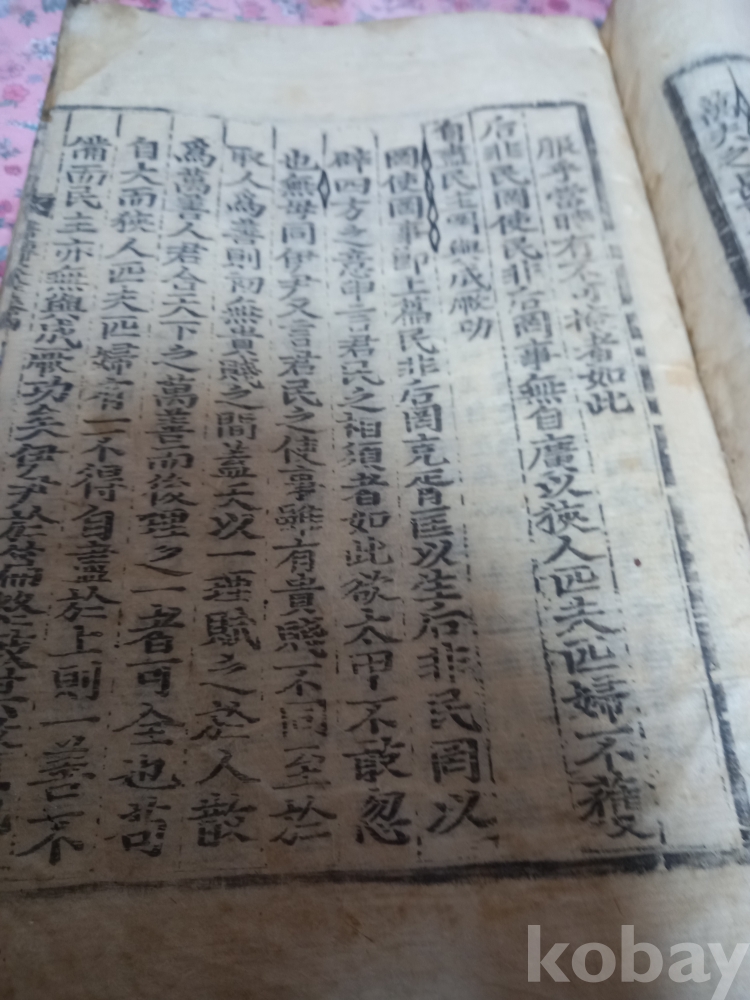 服乎當時有不可掩者如此
后非民罔使民非后罔事無自廣以狹人匹夫匹婦不獲
自盡民主罔與成厥功
罔使罔事即上篇民非后罔克胥匡以生后非民罔以
辟四方之意申言君民之相須者如此欲太甲不敢忽
也無毋同伊尹又言君民之使事雖有貴賤不同至於
取人爲善則初無貴賤之間蓋天以一理賦之於人散
爲萬善人君合天下之萬善而後理之一者可全也苟
自大而狹人匹夫匹婦有一不得自盡於上則一善不
備而民主亦無與成厥功矣伊尹於
之
kobay